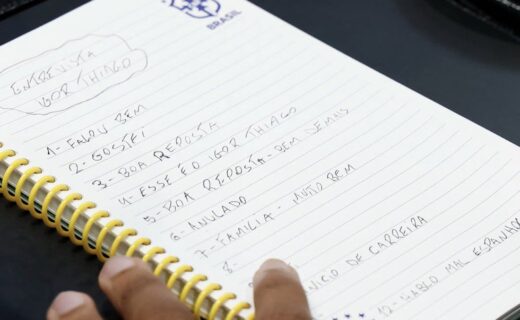 BRASIL
ENTREVISTA
IGOR THIAGO
1- FALOU BEM
2- GOSTEI
3- BOA REPOSTA
4- ESSE É O IGOR THIAGO
5- BOA REPOSTA - BEM DEMAIS
6- ANULADO
7- FAMILIA - MUITO BEM
8-
NICO DE CARREIRA
12- GABLO MAL ESPANHOL